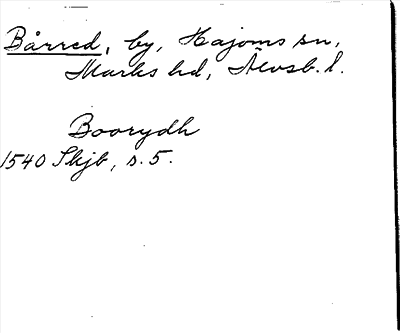 Bårred, by, Hajoms sn,
Marks hd, Älvsb. l.
Boorydh
1540 Skjb, s. 5.